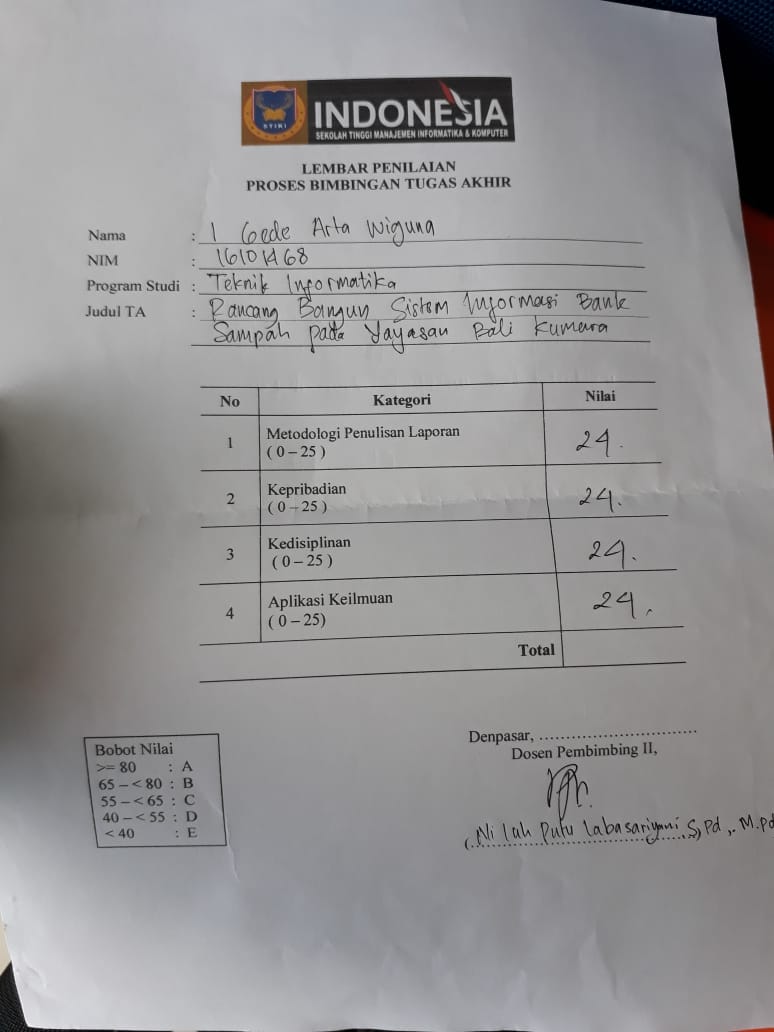 STIKI
INDONESIA
SEKOLAH TINGGI MANAJEMEN INFORMATIKA & KOMPUTER
LEMBAR PENILAIAN
PROSES BIMBINGAN TUGAS AKHIR
Nama : I Gede Arta Wiguna
NIM : 16101468
Program Studi : Teknik Informatika
Judul TA : Rancang Bangun Sistem Informasi Bank
Sampah pada Yayasan Bali Kumara
No Kategori Nilai
1 Metodologi Penulisan Laporan 24.
( 0 – 25 )
2 Kepribadian 24.
( 0 – 25 )
3 Kedisiplinan 24.
( 0 – 25 )
4 Aplikasi Keilmuan 24.
( 0 – 25)
Total
Denpasar, ..............................
Dosen Pembimbing II,
(Ni Luh Putu Labasariyani S,Pd,. M.pd
Bobot Nilai
>= 80 : A
65 – < 80 : B
55 – < 65 : C
40 – < 55 : D
< 40 : E